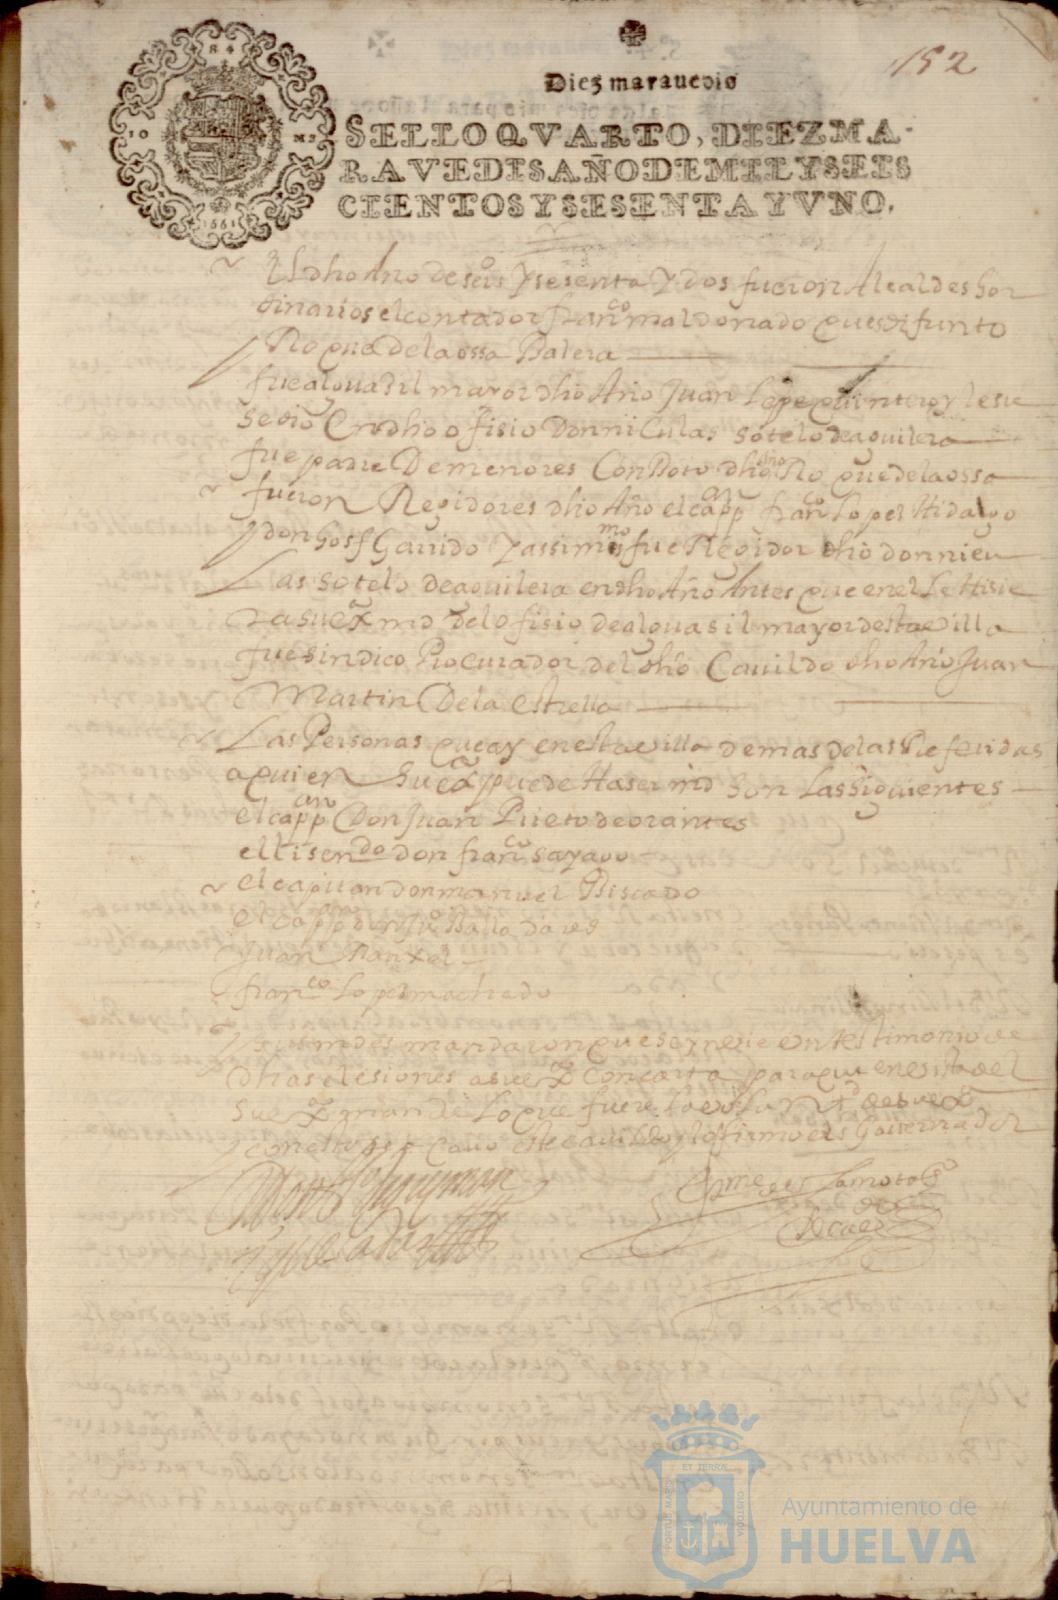 152
Diez marauedis
SELLO QVARTO, DIEZ MA-
RAVEDIS AÑO DE MIL Y SEIS
CIENTOS Y SESENTA Y VNO.
1661
El dho Año de seisos y sesenta y dos fueron Alcaldes hor
dinarios el contador franco maldonado ques difunto
Roque de la ossa Balera
fue alguasil maior dho Año Juan Lepe quintero y le su
sedio En dho ofisio Don niculas sotelo de aguilera
fue padre De menores Con Boto dho año Roque de la ossa
fueron Regidores dho Año el capp franco Lopes Hidalgo
y don Josf Garrido y assimismo fue Regidor dho don nicu
Las sotelo de aguilera en dho Año Antes que en el Le Hisie
Ra su exa md del ofisio de alguasil mayor desta villa
fue sindico Procurador del dho Cauildo dho Año Juan
Martin De la Estrella
Las Personas que ay en esta villa demas de las Referidas
a quien su exa puede Haser md son Las siguientes
el cappan Don Juan Prieto de orantes
el lisendo don franco sayago
el capitan don manuel Pescado
el cappan don Ju Balladares
Juan Manxel
franco Lopes machado
y sus mdes mandaron que se ynbie en testimonio de
dhas elesiones a su exa con carta para que en esta del
su exa mande Lo que fuere
con esto se este cauildo y lo firmo el s Gouernador
Ayuntamiento de
HUELVA
PORTUS MARIS
ET TERRÆ
CUSTODIA